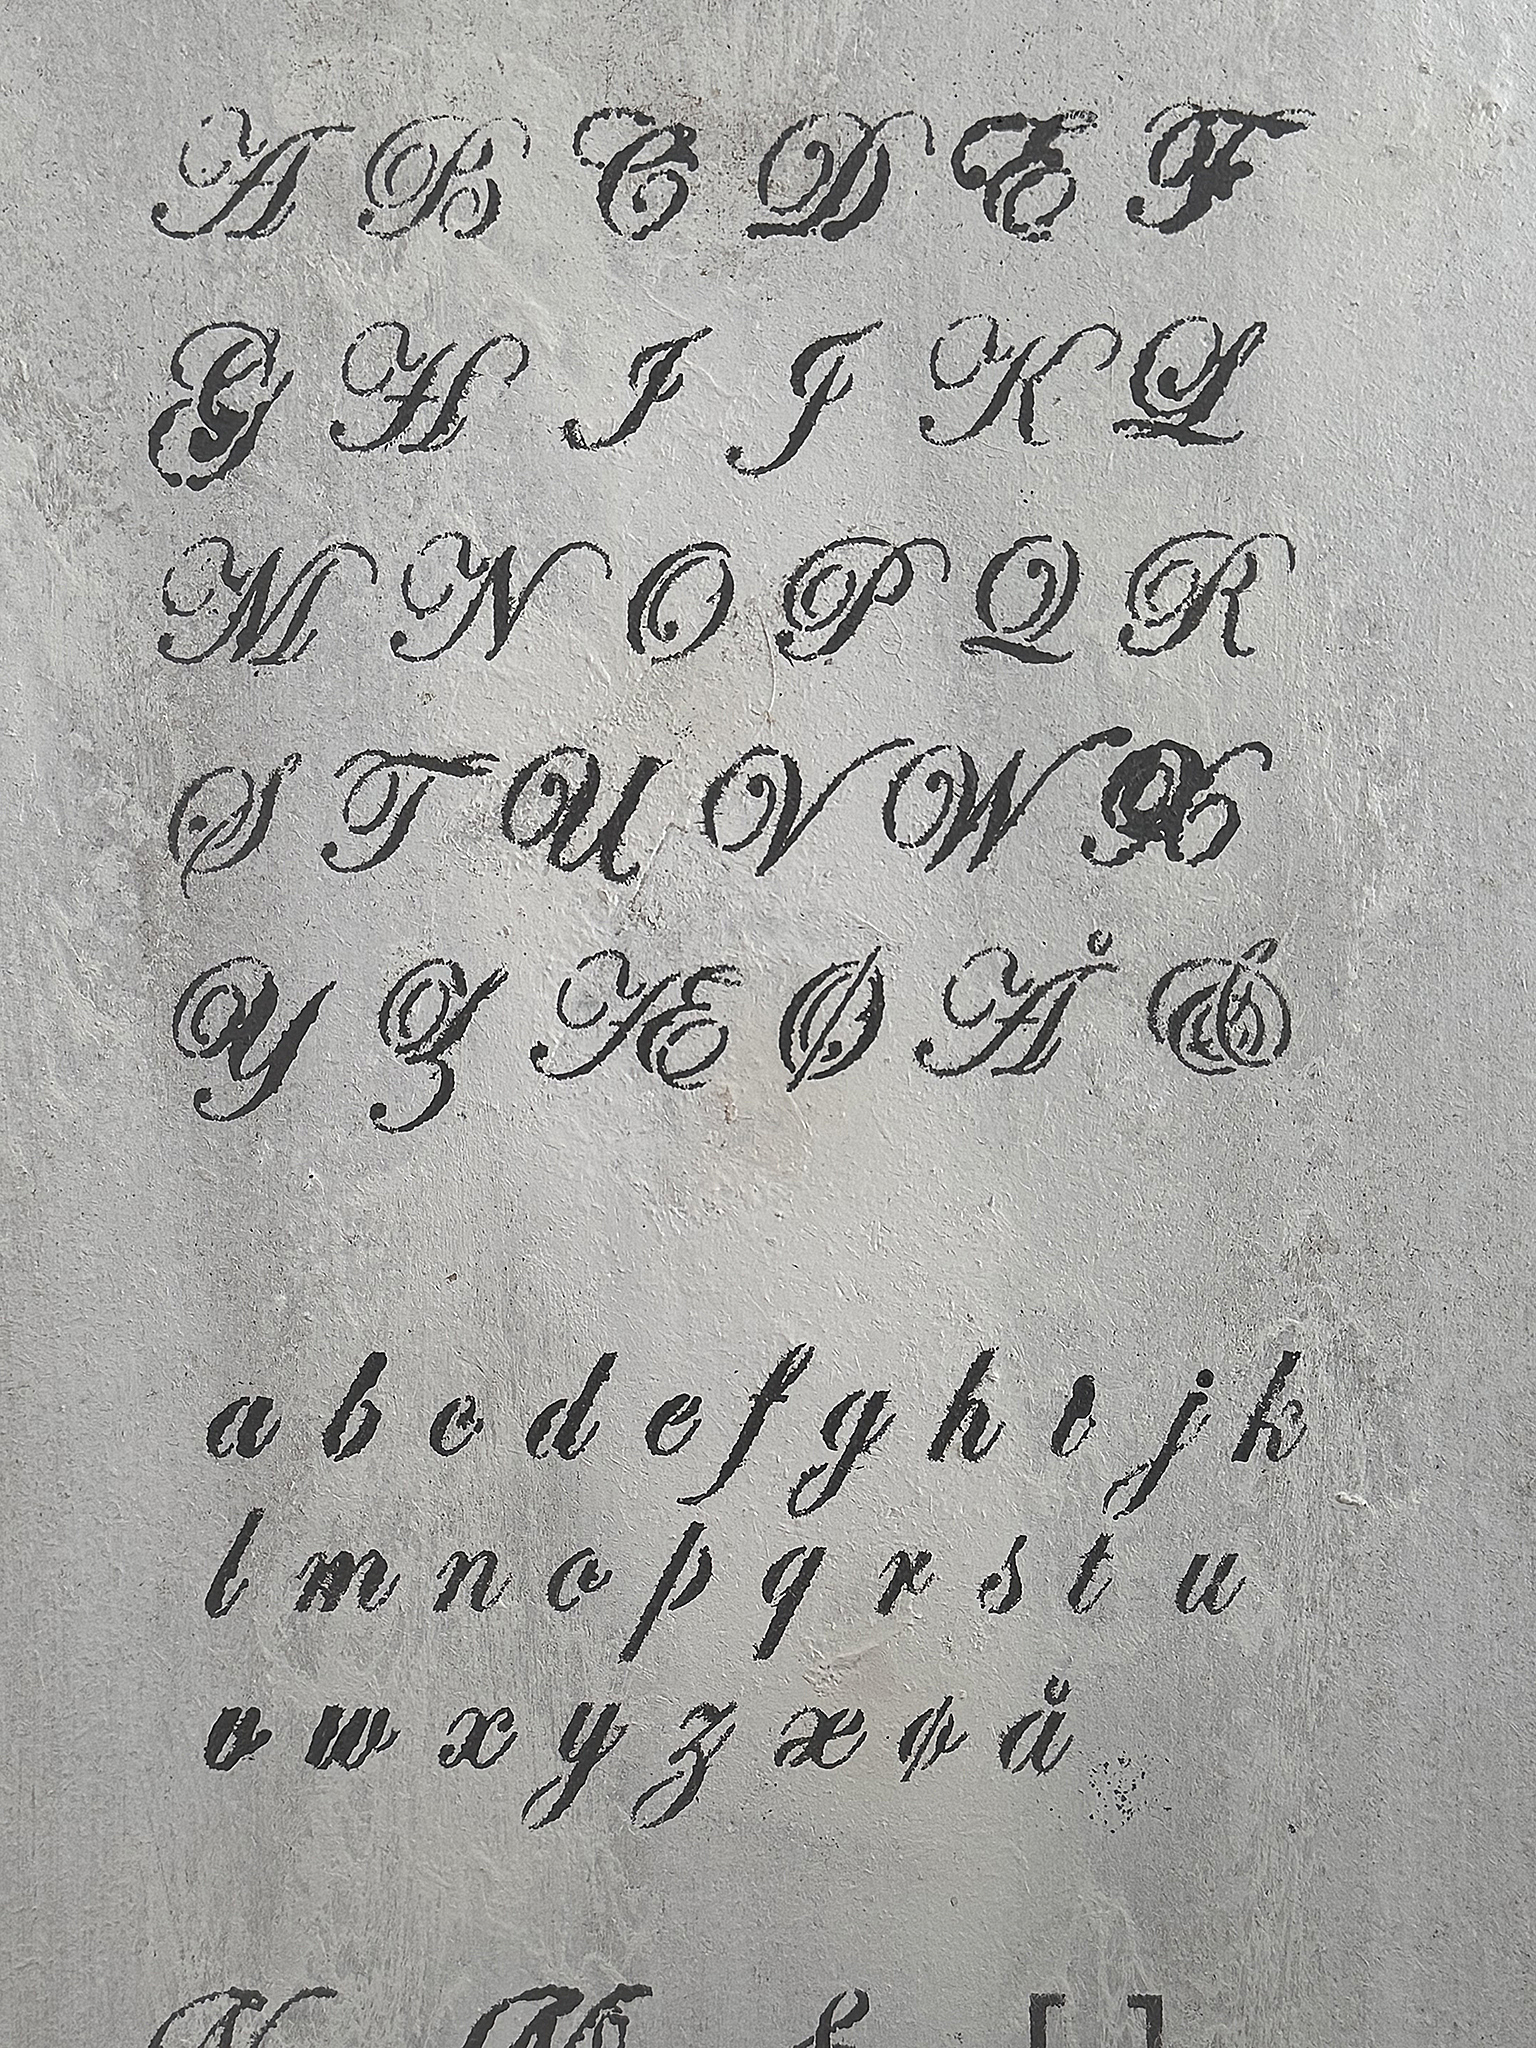 A B C D E F
G H I J K L
M N O P Q R
S T U V W X
Y Z Æ Ø Å &
a b c d e f g h i j k
l m n o p q r s t u
v w x y z æ ø å
[ ]